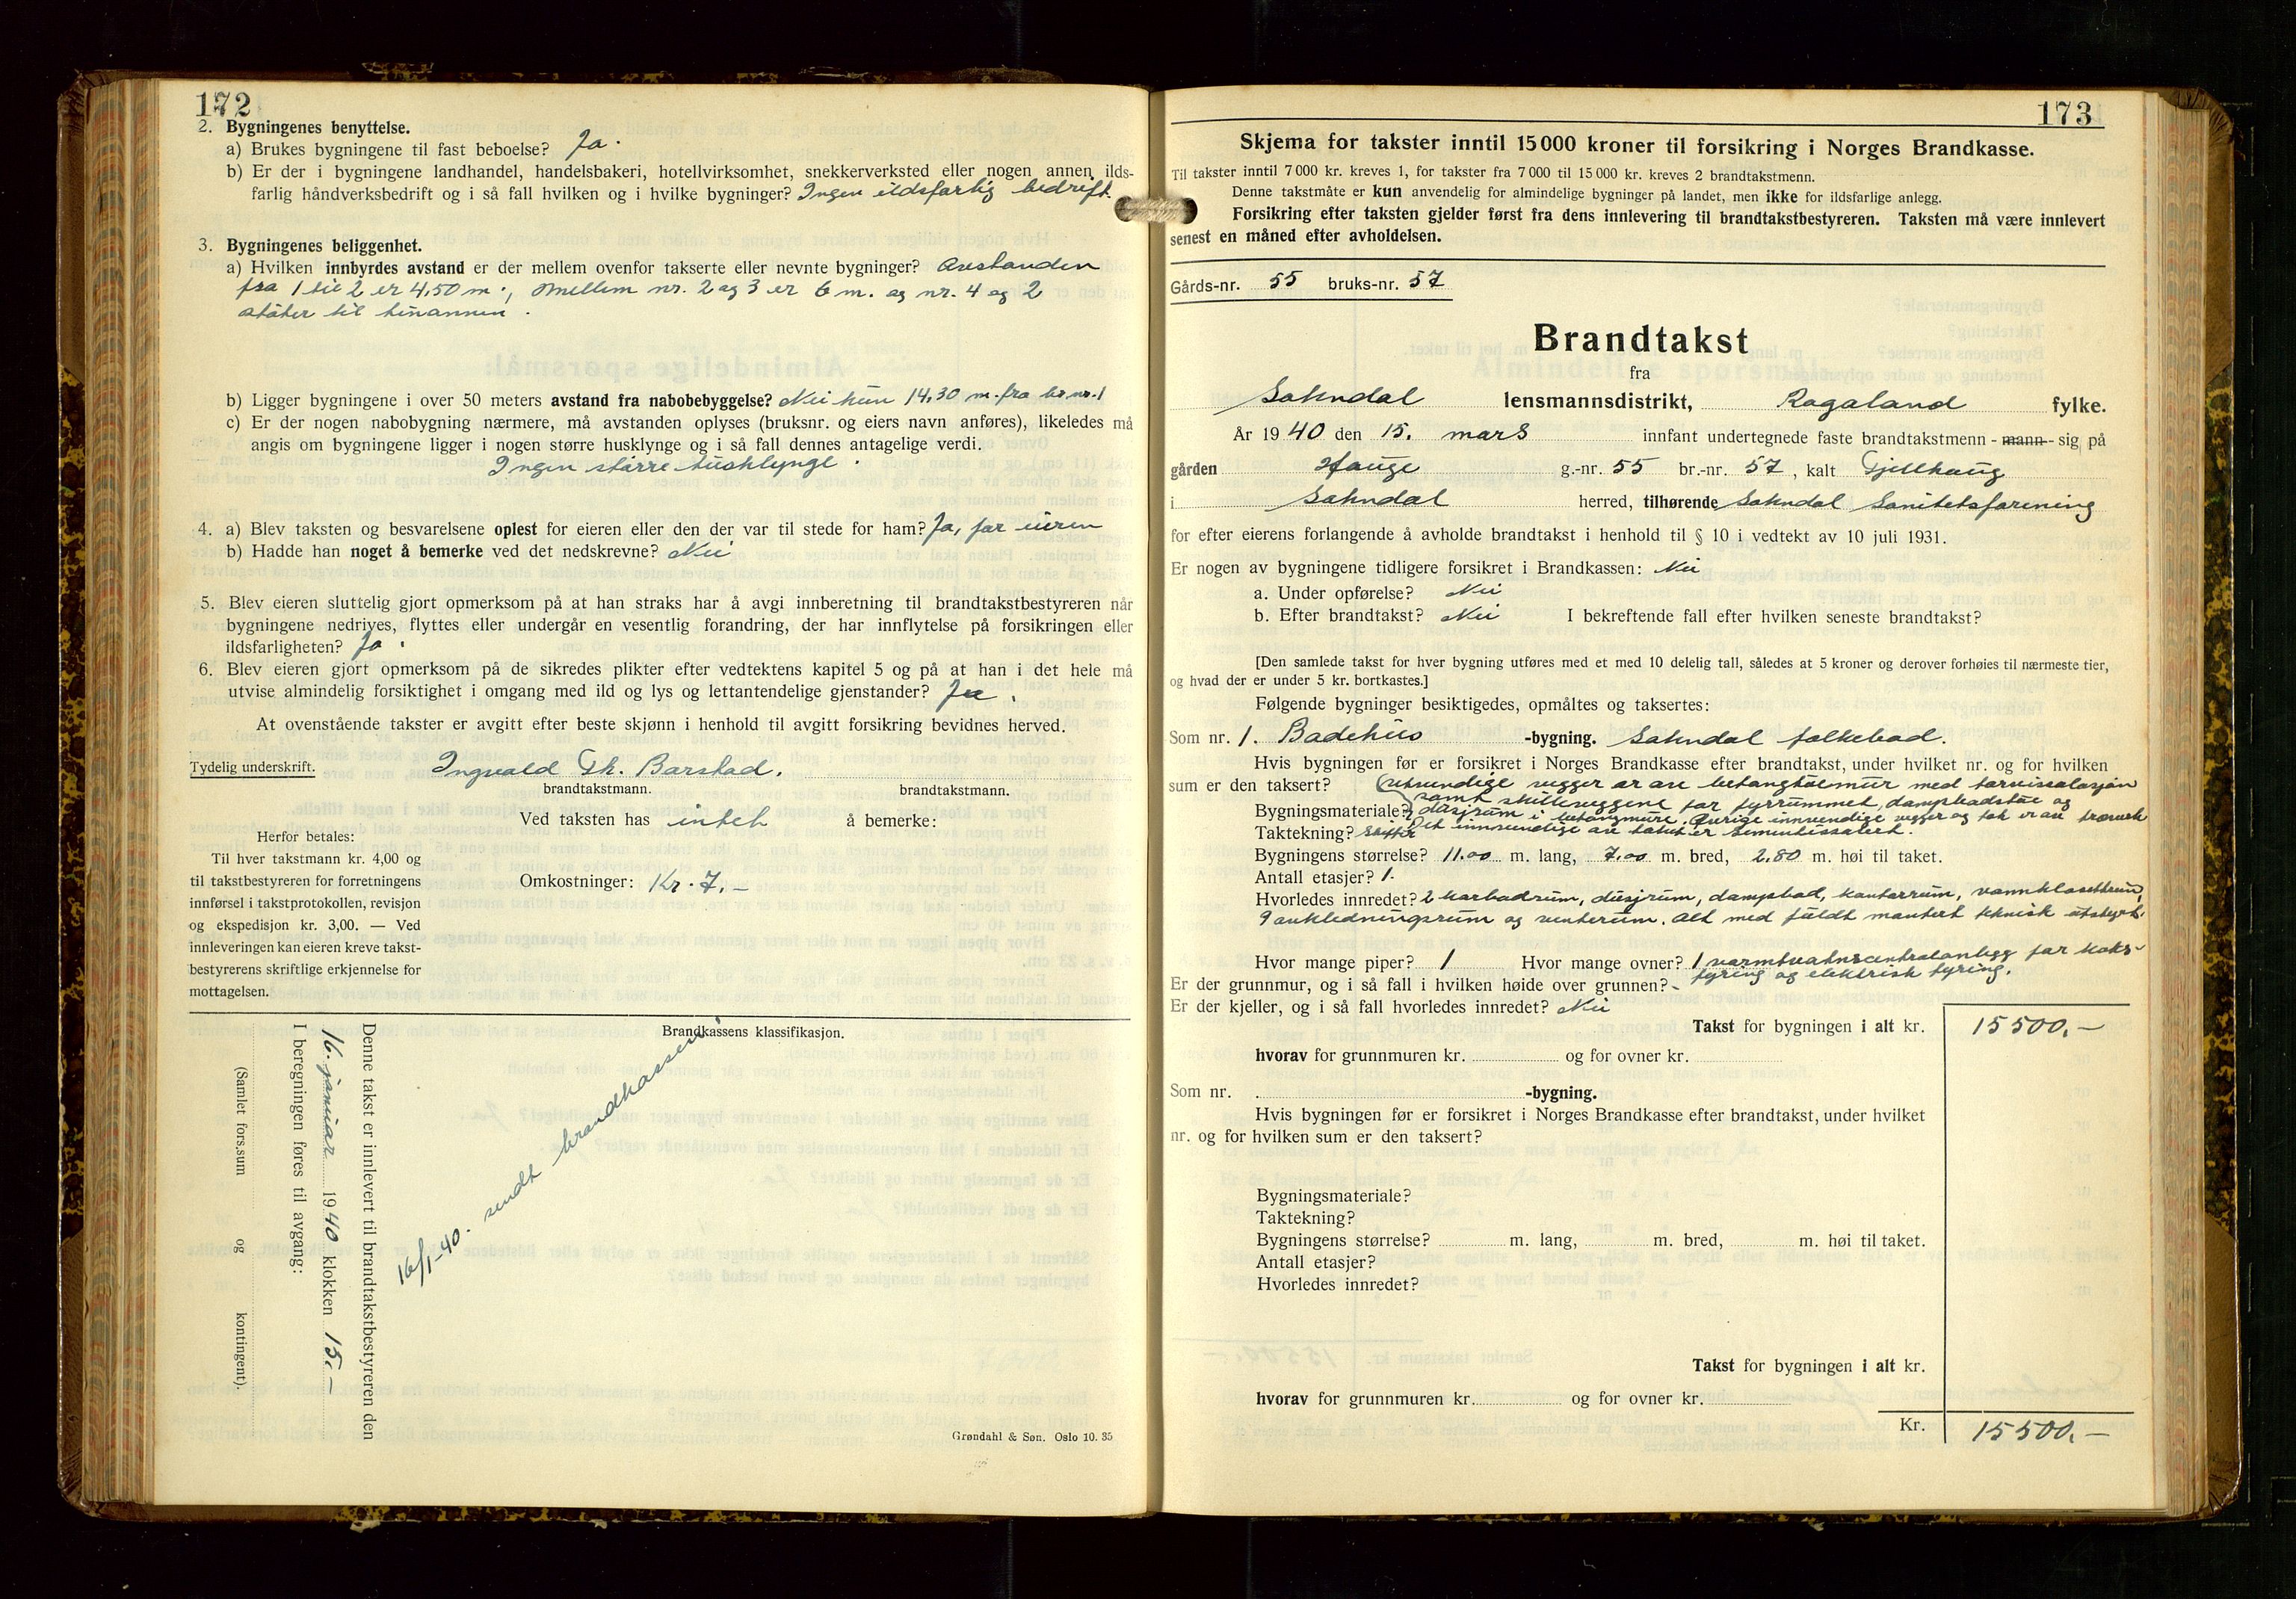 172
2. Bygningenes benyttelse.
a) Brukes bygningene til fast beboelse? Ja.
b) Er der i bygningene landhandel, handelsbakeri, hotellvirksomhet, snekkerverksted eller nogen annen ilds-
farlig håndverksbedrift og i så fall hvilken og i hvilke bygninger? Ingen ildsfarlig bedrift.
3. Bygningenes beliggenhet.
a) Hvilken innbyrdes avstand er der mellem ovenfor takserte eller nevnte bygninger? Avstanden
fra 1 til 2 er 4,50 m., mellem nr. 2 og 3 er 6 m. og nr. 4 og 2
støter til hinannen.
b) Ligger bygningene i over 50 meters avstand fra nabobebyggelse? Nei kun 14,30 m. fra br.nr. 1
c) Er der nogen nabobygning nærmere, må avstanden oplyses (bruksnr. og eiers navn anføres), likeledes må
angis om bygningene ligger i nogen større husklynge og i så fall dennes antagelige verdi.
Ingen større husklynge.
4. a) Blev taksten og besvarelsene oplest for eieren eller den der var til stede for ham? Ja, for eieren
b) Hadde han noget å bemerke ved det nedskrevne? Nei
5. Blev eieren sluttelig gjort opmerksom på at han straks har å avgi innberetning til brandtakstbestyreren når
bygningene nedrives, flyttes eller undergår en vesentlig forandring, der har innflytelse på forsikringen eller
ildsfarligheten? Ja.
6. Blev eieren gjort opmerksom på de sikredes plikter efter vedtektens kapitel 5 og på at han i det hele må
utvise almindelig forsiktighet i omgang med ild og lys og lettantendelige gjenstander? Ja.
At ovenstående takster er avgitt efter beste skjønn i henhold til avgitt forsikring bevidnes herved.
Tydelig underskrift. Ingvald Th. Barstad.
brandtakstmann. brandtakstmann.
Ved taksten has intet å bemerke:
Herfor betales:
Til hver takstmann kr. 4,00 og
til takstbestyreren for forretningens
innførsel i takstprotokollen, revisjon
og ekspedisjon kr. 3,00. — Ved
innleveringen kan eieren kreve takst-
bestyrerens skriftlige erkjennelse for
mottagelsen.
Omkostninger: Kr. 7.–
Brandkassens klassifikasjon.
Denne takst er innlevert til brandtakstbestyreren den
16. januar 1940 klokken 15.–
I beregningen føres til avgang:
(Samlet fors.sum og kontingent).
16/1-40. sendt brandkassen
Grøndahl & Søn. Oslo 10. 35
173
Skjema for takster inntil 15 000 kroner til forsikring i Norges Brandkasse.
Til takster inntil 7 000 kr. kreves 1, for takster fra 7 000 til 15 000 kr. kreves 2 brandtakstmenn.
Denne takstmåte er kun anvendelig for almindelige bygninger på landet, men ikke for ildsfarlige anlegg.
Forsikring efter taksten gjelder først fra dens innlevering til brandtakstbestyreren. Taksten må være innlevert
senest en måned efter avholdelsen.
Gårds-nr. 55 bruks-nr. 57
Brandtakst
fra
Sokndal lensmannsdistrikt, Rogaland fylke.
År 1940 den 15. mars innfant undertegnede faste brandtakstmenn - mann - sig på
gården Hauge g.-nr. 55 br.-nr. 57, kalt Fjellhaug
i Sokndal herred, tilhørende Sokndal Sanitetsforening
for efter eierens forlangende å avholde brandtakst i henhold til § 10 i vedtekt av 10 juli 1931.
Er nogen av bygningene tidligere forsikret i Brandkassen: Nei
a. Under opførelse? Nei
b. Efter brandtakst? Nei I bekreftende fall efter hvilken seneste brandtakst?
[Den samlede takst for hver bygning utføres med et med 10 delelig tall, således at 5 kroner og derover forhøies til nærmeste tier,
og hvad der er under 5 kr. bortkastes.]
Følgende bygninger besiktigedes, opmåltes og taksertes:
Som nr. 1. Badehus -bygning. Sokndal folkebad.
Hvis bygningen før er forsikret i Norges Brandkasse efter brandtakst, under hvilket nr. og for hvilken
sum er den taksert? utvendige vegger er av betonghulmur med torvisolasjon
Bygningsmateriale? samt skilleveggene for fyrrummet, dampbadstue og
dusjrum i betongmure. Øvrige innvendige vegger og tak er av treverk
Taktekning? Skifer. Det innvendige av taket er sementisolert.
Bygningens størrelse? 11.00 m. lang, 7.00 m. bred, 2.80 m. høi til taket.
Antall etasjer? 1.
Hvorledes innredet? 2 karbadrum, dusjrum, dampbad, kontorrum, vannklosettrum,
9 avkledningsrum og venterum. Alt med fuldt montert teknisk utstyr.
Hvor mange piper? 1 Hvor mange ovner? 1 varmtvatnscentralanlegg for koks-
fyring og elektrisk fyring.
Er der grunnmur, og i så fall i hvilken høide over grunnen? -
Er der kjeller, og i så fall hvorledes innredet? Nei
Takst for bygningen i alt kr. 15 500.–
hvorav for grunnmuren kr. og for ovner kr.
Som nr. . -bygning.
Hvis bygningen før er forsikret i Norges Brandkasse efter brandtakst, under hvilket
nr. og for hvilken sum er den taksert?
Bygningsmateriale?
Taktekning?
Bygningens størrelse? m. lang, m. bred, m. høi til taket.
Antall etasjer?
Hvorledes innredet?
Takst for bygningen i alt kr.
hvorav for grunnmuren kr. og for ovner kr.
Kr. 15 500.–